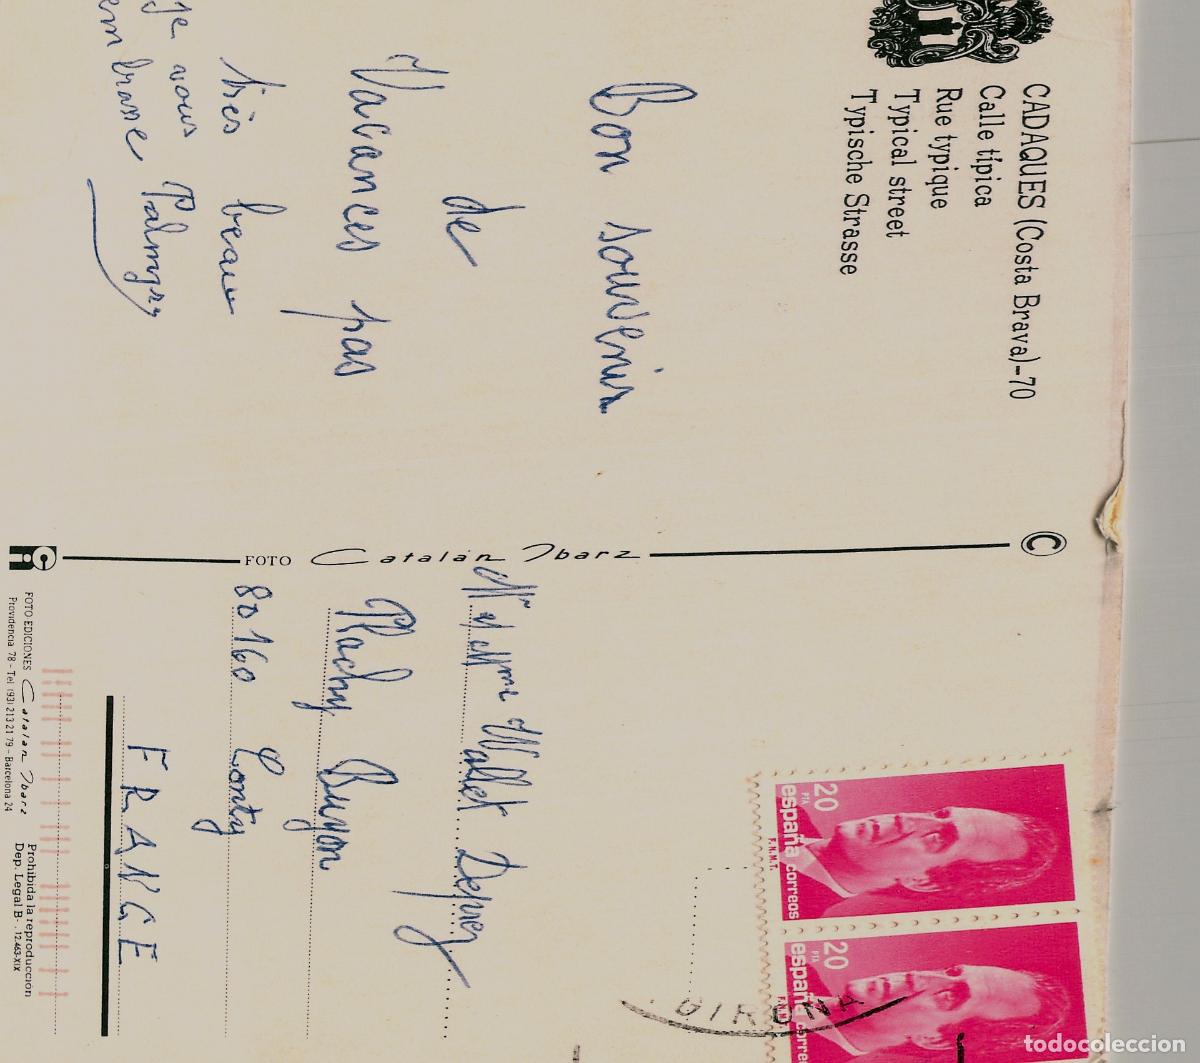 CADAQUES (Costa Brava)-70
Calle típica
Rue typique
Typical street
Typische Strasse
Bon souvenir
de
Vacances pas
très beau
je vous
embrasse Palmyre
©
FOTO Catalán Ibarz
Mr et Mme Wallet Deprez
Plachy Buyon
80160 Conty
FRANCE
20
PTA
españa correos
F.N.M.T.
20
PTA
españa correos
F.N.M.
GIRONA
FOTO EDICIONES Catalán Ibarz
Providencia 78 - Tel (93) 213 21 79 - Barcelona 24
Prohibida la reproducción
Dep. Legal B- 12.463-XIX
todocoleccion